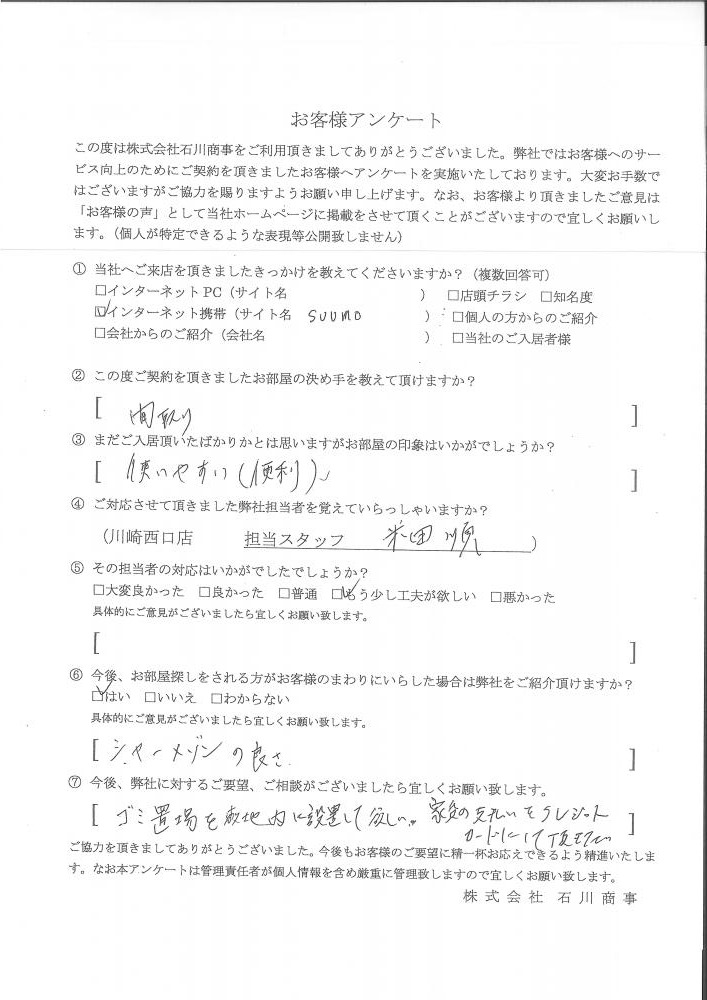 お客様アンケート
この度は株式会社石川商事をご利用頂きましてありがとうございました。弊社ではお客様へのサー
ビス向上のためにご契約を頂きましたお客様へアンケートを実施いたしております。大変お手数で
はございますがご協力を賜りますようお願い申し上げます。なお、お客様より頂きましたご意見は
「お客様の声」として当社ホームページに掲載をさせて頂くことがございますので宜しくお願いし
ます。（個人が特定できるような表現等公開致しません）
① 当社へご来店を頂きましたきっかけを教えてくださいますか？（複数回答可）
□インターネット PC（サイト名 ） □店頭チラシ □知名度
☑インターネット携帯（サイト名 SUUMO ） □個人の方からのご紹介
□会社からのご紹介（会社名 ） □当社のご入居者様
② この度ご契約を頂きましたお部屋の決め手を教えて頂けますか？
[ 間取り ]
③ まだご入居頂いたばかりかとは思いますがお部屋の印象はいかがでしょうか？
[ 使いやすい(便利)、 ]
④ ご対応させて頂きました弊社担当者を覚えていらっしゃいますか？
（川崎西口店 担当スタッフ 米田 順 ）
⑤ その担当者の対応はいかがでしたでしょうか？
□大変良かった □良かった □普通 ☑もう少し工夫が欲しい □悪かった
具体的にご意見がございましたら宜しくお願い致します。
[ ]
⑥ 今後、お部屋探しをされる方がお客様のまわりにいらした場合は弊社をご紹介頂けますか？
☑はい □いいえ □わからない
具体的にご意見がございましたら宜しくお願い致します。
[ シャーメゾンの良さ ]
⑦ 今後、弊社に対するご要望、ご相談がございましたら宜しくお願い致します。
[ ゴミ置場を敷地内に設置して欲しい。家賃の支払いをクレジット
カードにして頂きたい ]
ご協力を頂きましてありがとうございました。今後もお客様のご要望に精一杯お応えできるよう精進いたしま
す。なお本アンケートは管理責任者が個人情報を含め厳重に管理致しますので宜しくお願い致します。
株式会社 石川商事